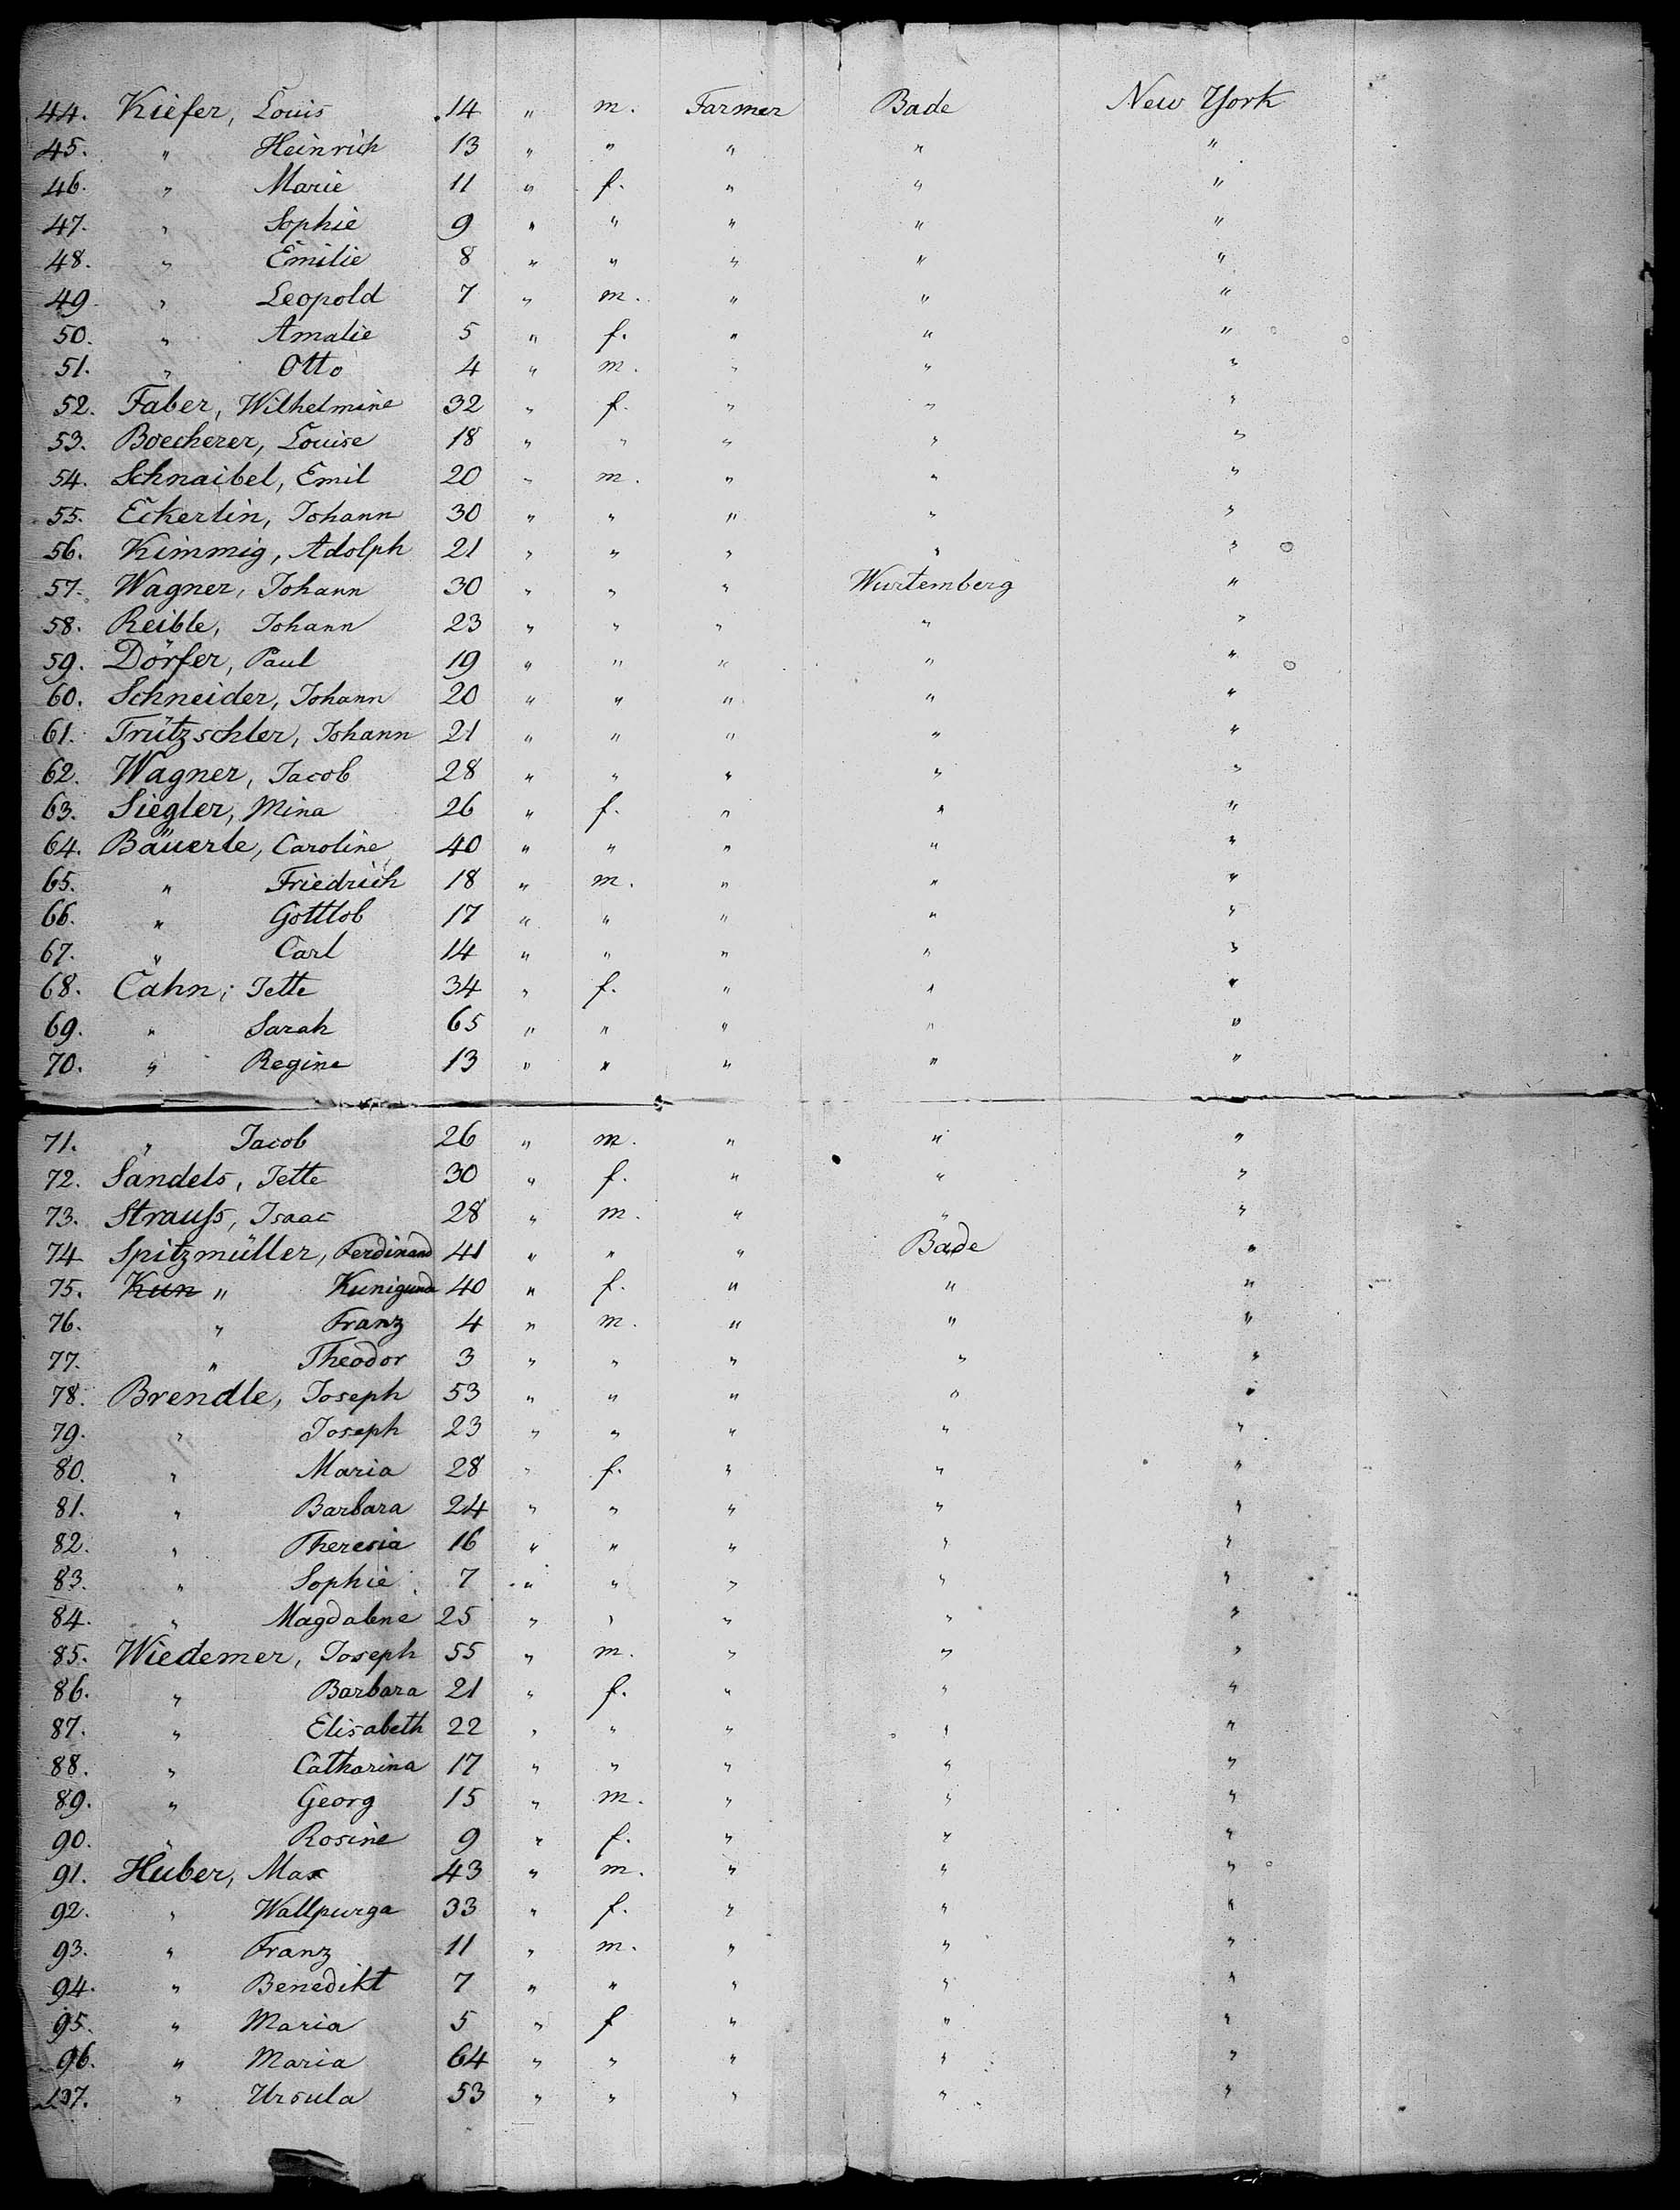 44. Kiefer, Louis 14 " m. Farmer Bade New York
45. " Heinrich 13 " " " " "
46. " Marie 11 " f. " " "
47. " Sophie 9 " " " " "
48. " Emilie 8 " " " " "
49. " Leopold 7 " m. " " "
50. " Amalie 5 " f. " " "
51. " Otto 4 " m. " " "
52. Faber, Wilhelmine 32 " f. " " "
53. Boecherer, Louise 18 " " " " "
54. Schnaibel, Emil 20 " m. " " "
55. Eckerlin, Johann 30 " " " " "
56. Kimmig, Adolph 21 " " " " "
57. Wagner, Johann 30 " " " Wurtemberg "
58. Reible, Johann 23 " " " " "
59. Dörfer, Paul 19 " " " " "
60. Schneider, Johann 20 " " " " "
61. Trützschler, Johann 21 " " " " "
62. Wagner, Jacob 28 " " " " "
63. Siegler, Mina 26 " f. " " "
64. Bäuerle, Caroline 40 " " " " "
65. " Friedrich 18 " m. " " "
66. " Gottlob 17 " " " " "
67. " Carl 14 " " " " "
68. Cahn, Jette 34 " f. " " "
69. " Sarah 65 " " " " "
70. " Regine 13 " " " " "
71. " Jacob 26 " m. " " "
72. Sandels, Jette 30 " f. " " "
73. Strauſs, Isaac 28 " m. " " "
74 Spitzmüller, Ferdinand 41 " " " Bade "
75. Kun " Kunigunda 40 " f. " " "
76. " Franz 4 " m. " " "
77. " Theodor 3 " " " " "
78. Brendle, Joseph 53 " " " " "
79. " Joseph 23 " " " " "
80. " Maria 28 " f. " " "
81. " Barbara 24 " " " " "
82. " Theresia 16 " " " " "
83. " Sophie 7 " " " " "
84. " Magdalene 25 " " " " "
85. Wiedemer, Joseph 55 " m. " " "
86. " Barbara 21 " f. " " "
87. " Elisabeth 22 " " " " "
88. " Catharina 17 " " " " "
89. " Georg 15 " m. " " "
90. " Rosine 9 " f. " " "
91. Huber, Max 43 " m. " " "
92. " Wallpurga 33 " f. " " "
93. " Franz 11 " m. " " "
94. " Benedikt 7 " " " " "
95. " Maria 5 " f " " "
96. " Maria 64 " " " " "
97. " Ursula 53 " " " " "